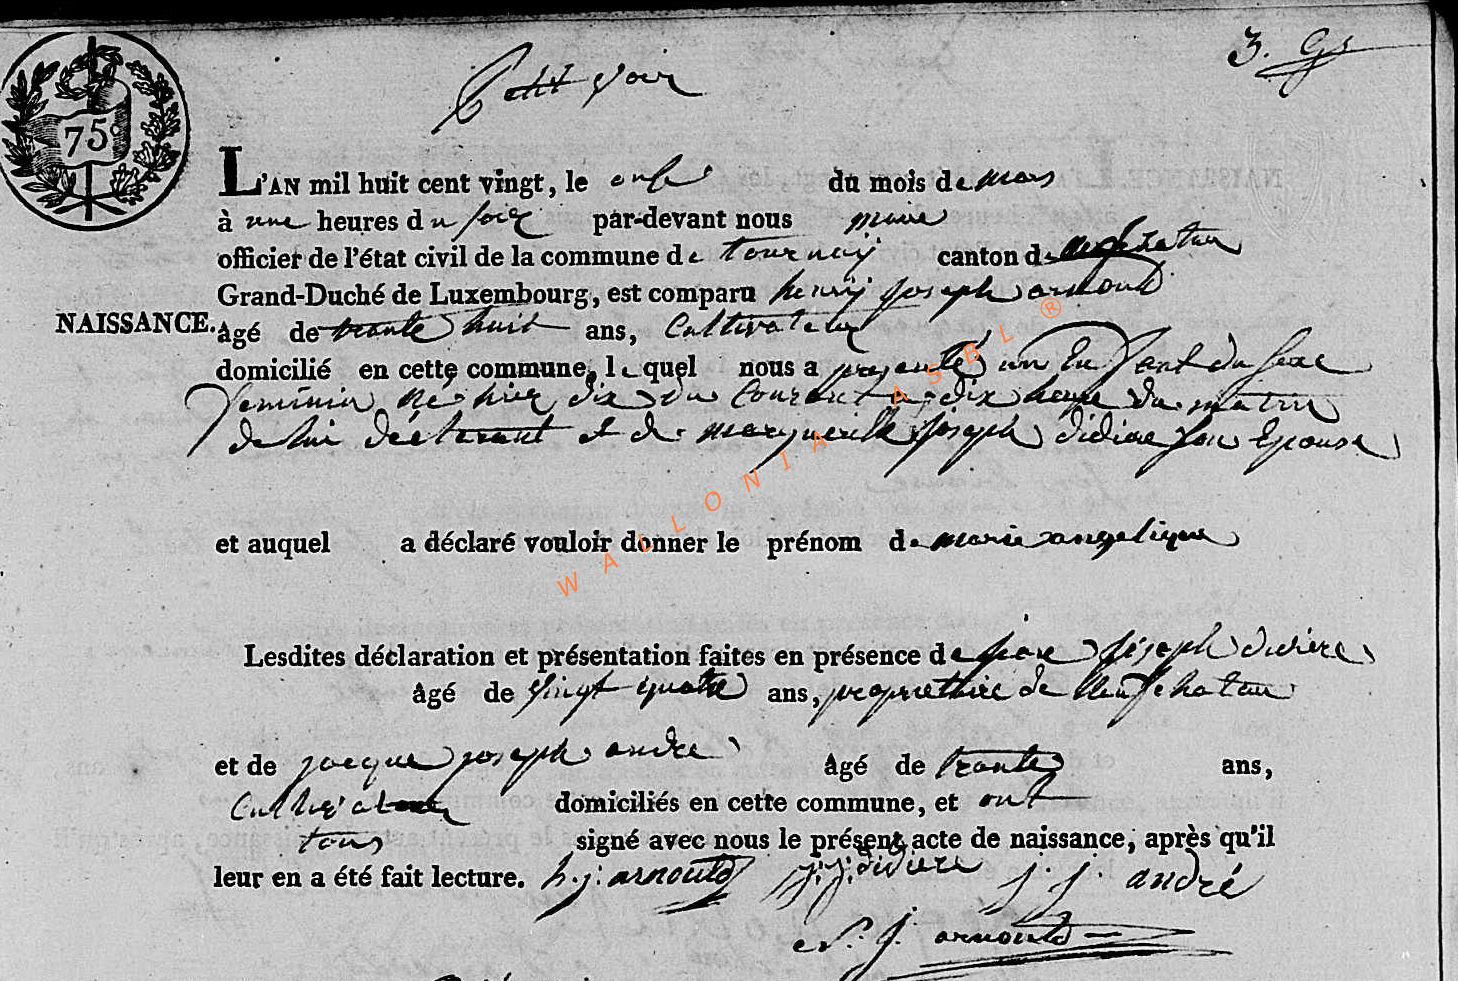 3. Gs
Petit Voir
75c
L'AN mil huit cent vingt, le onse du mois de mars
à une heures du soir par-devant nous maire
officier de l'état civil de la commune de tournay canton de neufchateau
Grand-Duché de Luxembourg, est comparu henry joseph arnould
NAISSANCE. âgé de trante huit ans, Cultivateur
domicilié en cette commune, lequel nous a presenté un Enfant du sexe
feminin né hier dix du Courant a dix heure du matin
de lui déclarant et de margueritte joseph didier son Epouse
et auquel a déclaré vouloir donner le prénom de marie angelique
Lesdites déclaration et présentation faites en présence de joseph didiere
âgé de vingt quatre ans, propriethire de Neufchateau
et de jacque joseph andre âgé de trante ans,
Cultivateur domiciliés en cette commune, et ont
tous signé avec nous le présent acte de naissance, après qu'il
leur en a été fait lecture. h. j. arnould j. j. didiere j. j. andré
N. j. arnould
WALLONIA ASBL ®